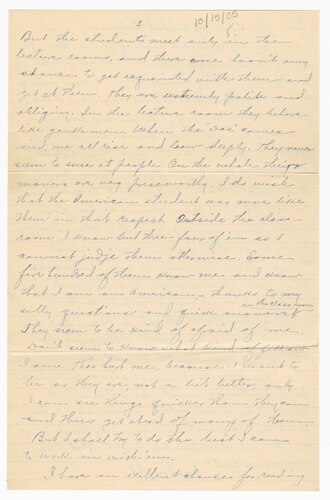 10/15/05
5.
But the students meet only in the
lecture rooms, and there one hasn't any
chance to get acquainted with them and
get at them. They are extremely polite and
obliging. In the lecture room they behave
like gentlemen. When the comes
in we all rise and bow deeply. They never
seem to sneer at people. On the whole their
manners are very praiseworthy. I do wish
that the American student was more like
them in that respect. Outside the class-
room I know but three four of 'em so I
cannot judge them otherwise. Some
five hundred of them know me and know
that I am an American – thanks to my
silly questions and quick answers in the class room
They seem to be kind of afraid of me.
Don't seem to know what kind of
I am. This hurt me, because I want to
be as they are not a bit better, only
I can see things quicker than they can
and thus get ahead of many of them.
But I shall try to do the best I can
to work in with 'em.
I have an exellent chance for reading